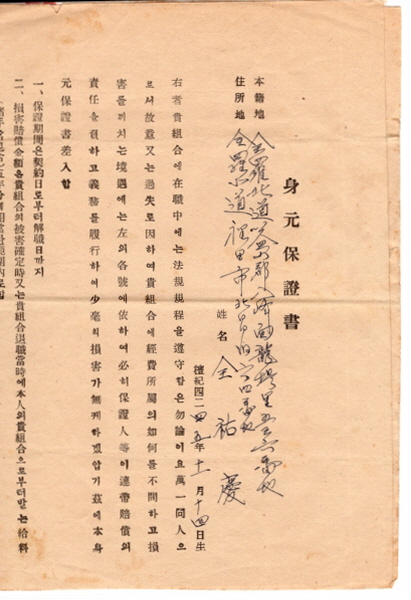 身元保證書
本籍地 全羅北道益山郡八峰面龍 里五三六番地
住所地 全羅北道裡里市北 六四番地
姓名 全祐慶
檀紀四二四五年十一月十四日生
右者貴組合에在職中에는法規規程을遵守함은勿論이요萬一同人으
로서故意又는過失로因하여貴組合에經費所屬의如何를不問하고損
害를끼치는境遇에는左의各號에依하여必히保證人等이連帶賠償의
責任을 義務를履行하여少毫의損害가無케하겠압기玆에本身
元保證書差入함
一、保證期間은契約日로부터解職日까지
二、損害賠償金額을貴組合의被害確定時又는貴組合退職當時에本人의貴組合으로부터받는給料